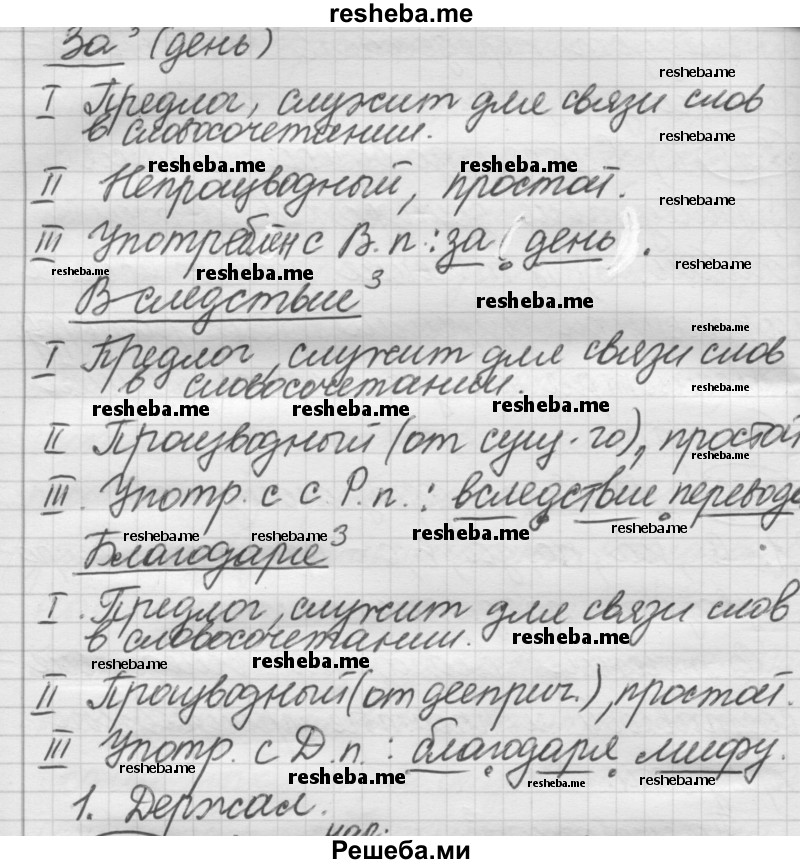 resheba.me
За³ (день)
resheba.me
I Предлог, служит для связи слов
в словосочетании.
resheba.me
resheba.me resheba.me
II Непроизводный, простой.
resheba.me
III Употреблён с В.п.: за (день).
resheba.me resheba.me resheba.me
Вследствие³
resheba.me
resheba.me
I Предлог, служит для связи слов
в словосочетании.
resheba.me
resheba.me resheba.me resheba.me
II Производный (от сущ-го), простой
resheba.me
III. Употр. с с Р.п.: вследствие перевода
resheba.me resheba.me resheba.me resheba.me
Благодаря³
I. Предлог, служит для связи слов
в словосочетании. resheba.me
resheba.me resheba.me
II Производный (от дееприч.), простой.
III Употр. с Д.п.: благодаря мифу.
resheba.me resheba.me resheba.me resheba.me
1. Держал.
нар.
Решеба.ми